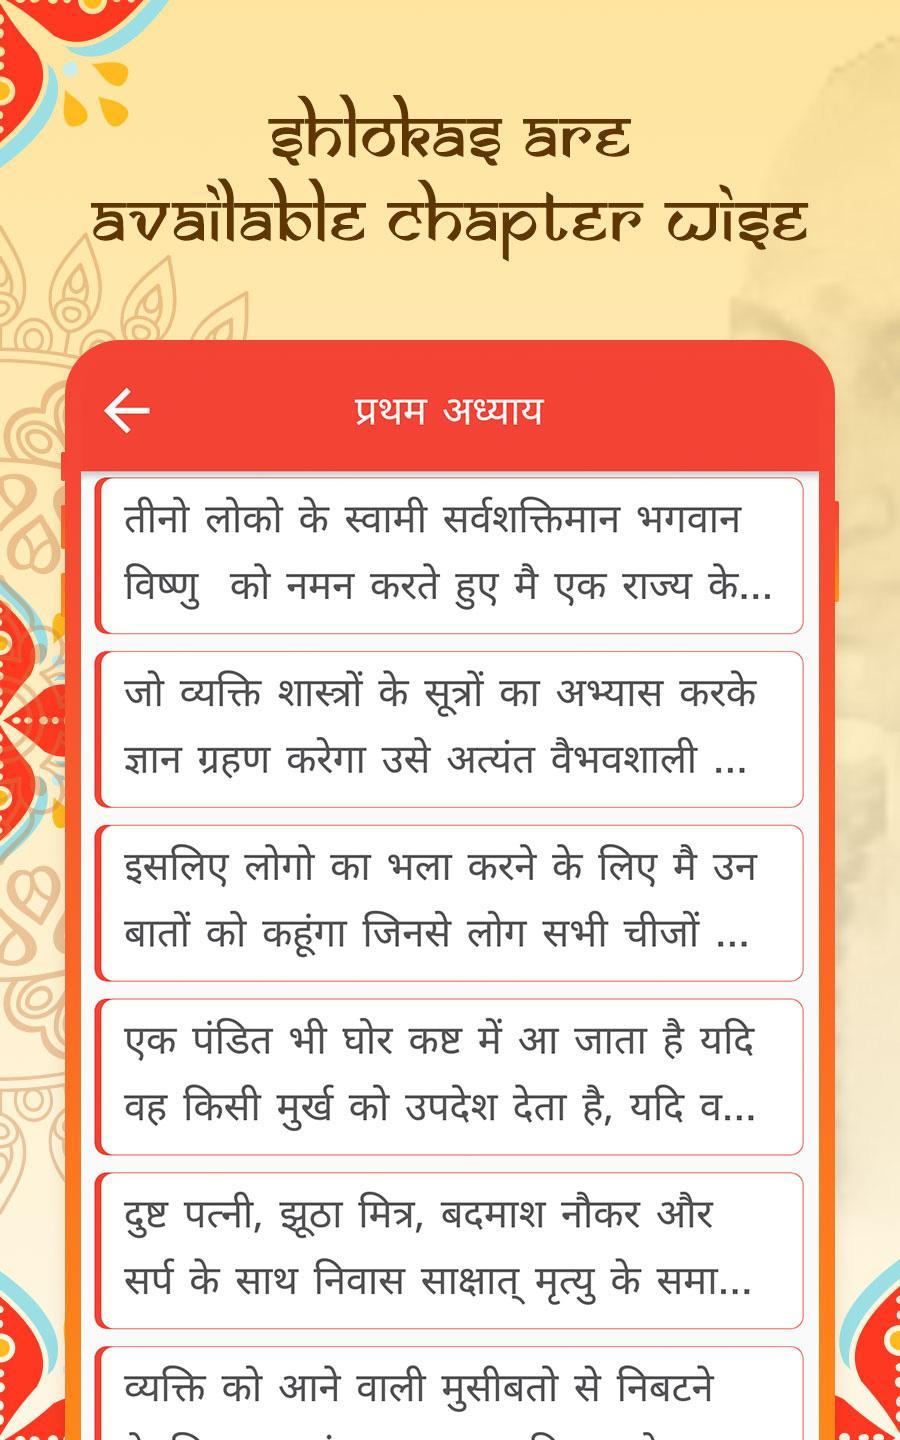 shlokas are
available chapter wise
प्रथम अध्याय
तीनो लोको के स्वामी सर्वशक्तिमान भगवान
विष्णु  को नमन करते हुए मै एक राज्य के...
जो व्यक्ति शास्त्रों के सूत्रों का अभ्यास करके
ज्ञान ग्रहण करेगा उसे अत्यंत वैभवशाली ...
इसलिए लोगो का भला करने के लिए मै उन
बातों को कहूंगा जिनसे लोग सभी चीजों ...
एक पंडित भी घोर कष्ट में आ जाता है यदि
वह किसी मुर्ख को उपदेश देता है, यदि व...
दुष्ट पत्नी, झूठा मित्र, बदमाश नौकर और
सर्प के साथ निवास साक्षात् मृत्यु के समा...
व्यक्ति को आने वाली मुसीबतो से निबटने